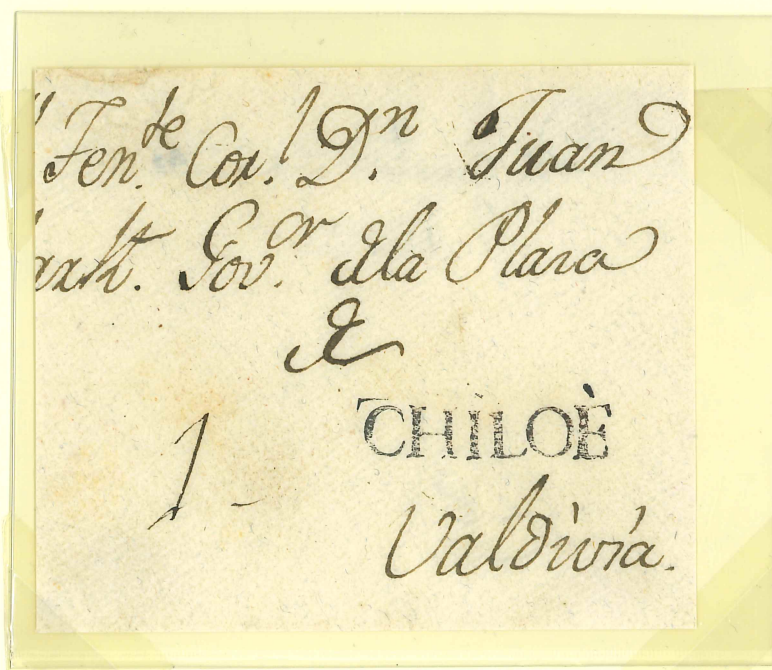 Ten.te Cor.l D.n Juan
Gov.or dela Plaza
de
CHILOÈ
1
Valdivia.